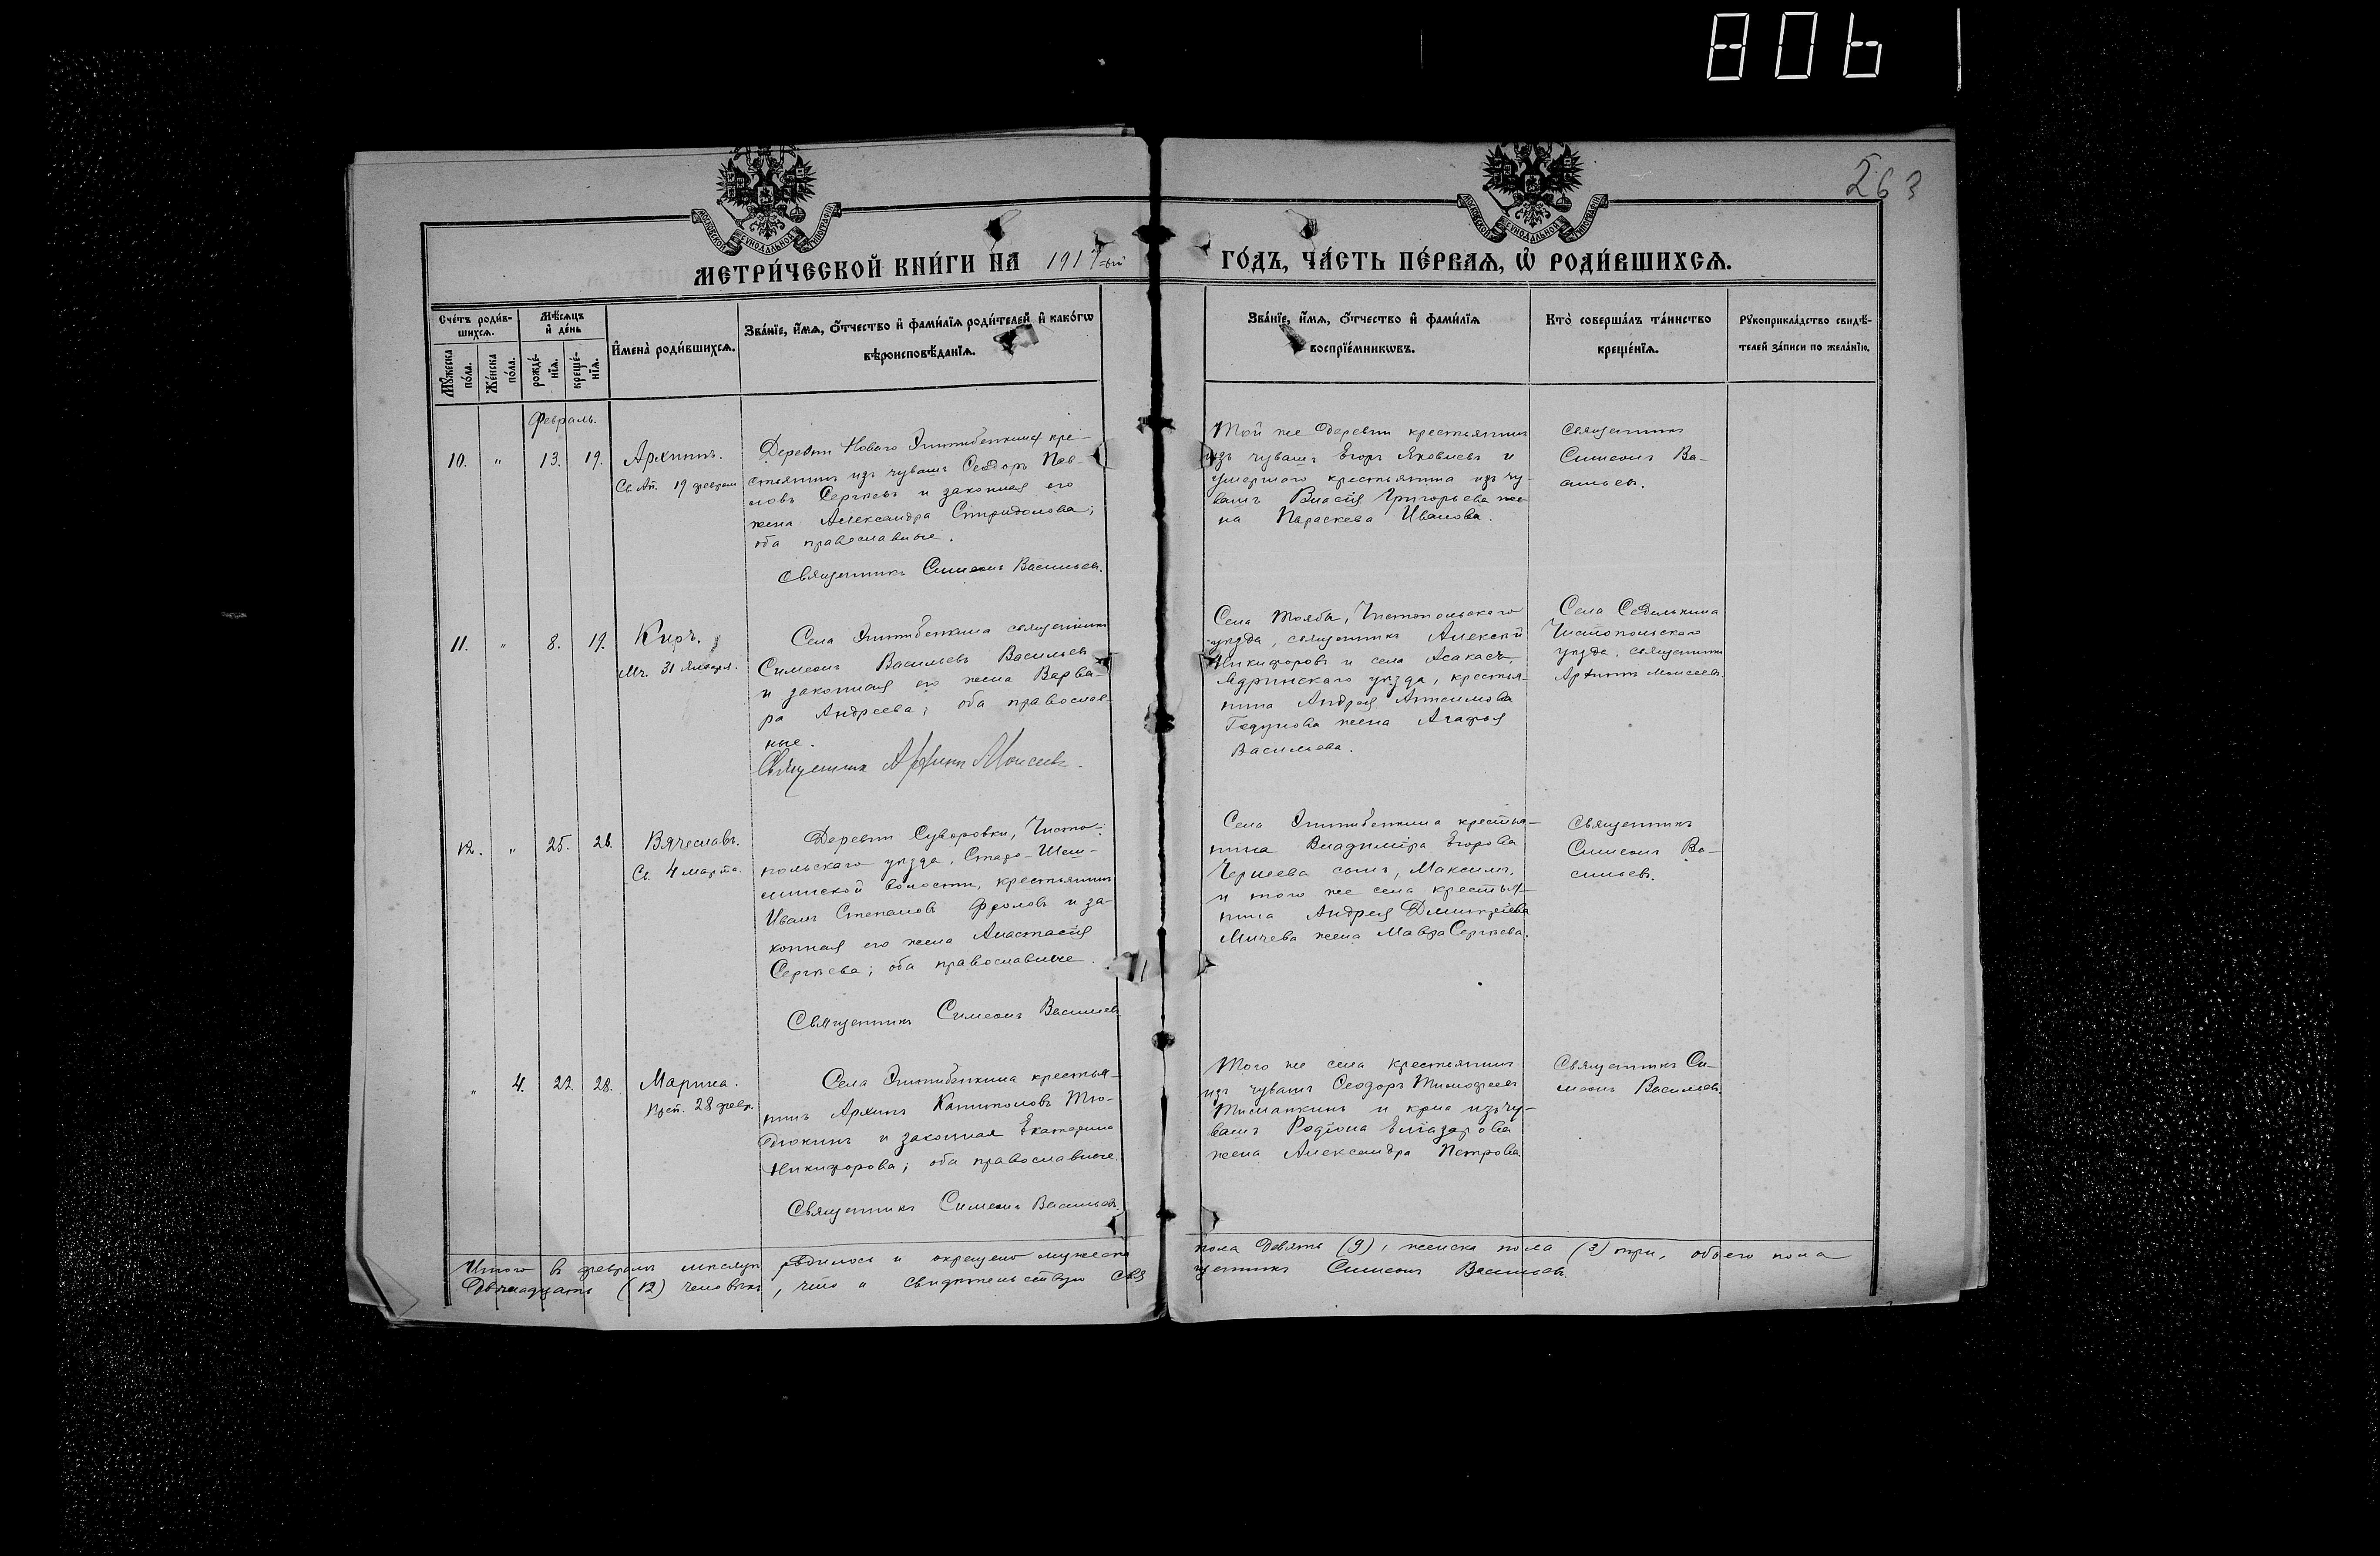 806
263
МОСКОВСКОЙ СѴНОДАЛЬНОЙ ТИПОГРАФІИ
МОСКОВСКОЙ СѴНОДАЛЬНОЙ ТИПОГРАФІИ
МЕТРИ́ЧЕСКОЙ КНИ́ГИ НА 1917-ый
ГО́ДЪ, ЧА́СТЬ ПЕ́РВАЯ, Ѡ҆ РОДИ́ВШИХСЯ.
Сче́тъ роди́в-
шихся.
Мꙋ́жеска
по́ла.
Же́нска
по́ла.
Мѣ́сяцъ
и҆ де́нь
рожде́-
нїя.
креще́-
нїя.
И҆мена̀ роди́вшихся.
Зва́нїе, и҆́мя, ѻ҆́тчество и҆ фами́лїя роди́телей и҆ како́гѡ
вѣроисповѣ́данїя.
Зва́нїе, и҆́мя, ѻ҆́тчество и҆ фами́лїя
воспрїе́мникѡвъ.
Кто̀ соверша́лъ та́инство
креще́нїя.
Рꙋкоприкла́дство свидѣ́-
телей за́писи по жела́нїю.
Февраль.
10. " 13. 19. Архиппъ.
Св. Ап. 19 феврал
Деревни Новаго Эштебенкина кре-
стьянинъ изъ чувашъ Ѳеодоръ Пав-
ловъ Сергѣевъ и законная его
жена Александра Спиридонова;
оба православные.
Священникъ Симеонъ Васильевъ.
Той же деревни крестьянинъ
изъ чувашъ Егоръ Яковлевъ и
умершаго крестьянина изъ чу-
вашъ Власія Григорьева же-
на Параскева Иванова.
Священникъ
Симеонъ Ва-
сильевъ.
11. " 8. 19. Киръ.
Мч. 31 января.
Села Эштебенкина священникъ
Симеонъ Васильевъ Васильевъ
и законная его жена Варва-
ра Андреева; оба православ-
ные.
Священник Архипп Моисеев
Села Тоябы, Чистопольскаго
уѣзда, священникъ Алексѣй
Никифоровъ и села Асакасъ,
Ядринскаго уѣзда, крестья-
нина Андрея Анисимова
жена Агафья
Васильева.
Села Седелькина
Чистопольскаго
уѣзда, священникъ
Архиппъ Моисеевъ
12. " 25. 26. Вячеславъ.
Св. 4 марта.
Деревни Суворовки, Чисто-
польскаго уѣзда, Старо-Шеш-
минской волости, крестьянинъ
Иванъ Степановъ Фроловъ и за-
конная его жена Анастасія
Сергѣева; оба православные.
Священникъ Симеонъ Васильевъ
Села Эштебенкина крестья-
нина Владиміра Егорова
сынъ, Максимъ,
и того же села крестья-
нина Андрея Дмитріева
Мичева жена Мавра Сергѣева.
Священникъ
Симеонъ Ва-
сильевъ.
" 4. 22. 28. Марина.
Преп. 28 февр.
Села Эштебенкина крестья-
нинъ Архипъ Капитоновъ Тю-
дюкинъ и законная Екатерина
Никифорова; оба православные.
Священникъ Симеонъ Васильевъ
Того же села крестьянинъ
изъ чувашъ Ѳеодоръ Тимофеевъ
и крна изъ чу-
вашъ Родіона Елиазарова
жена Александра Петрова.
Священникъ Си-
меонъ Васильевъ.
Итого въ февралѣ мѣсяцѣ родилось и окрещено мужеска пола девять (9), женска пола (3) три, обоего пола
двѣнадцать (12) человѣкъ, что и свидѣтельствую Священникъ Симеонъ Васильевъ.